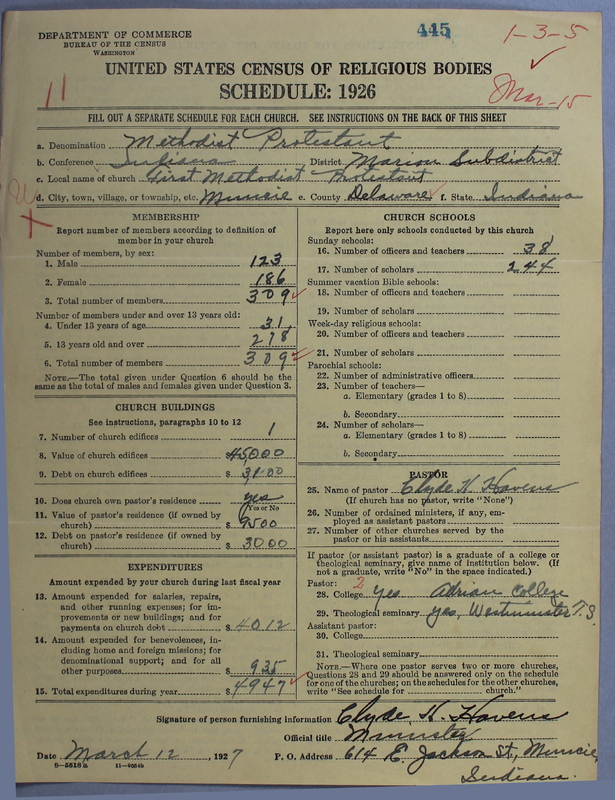 DEPARTMENT OF COMMERCE
BUREAU OF THE CENSUS
WASHINGTON
445
1-3-5
Mar-15
11
UNITED STATES CENSUS OF RELIGIOUS BODIES
SCHEDULE: 1926
FILL OUT A SEPARATE SCHEDULE FOR EACH CHURCH. SEE INSTRUCTIONS ON THE BACK OF THIS SHEET
a. Denomination Methodist Protestant
b. Conference Indiana District Marion Subdistrict
c. Local name of church First Methodist Protestant
d. City, town, village, or township, etc. Muncie e. County Delaware f. State Indiana
MEMBERSHIP
Report number of members according to definition of member in your church
Number of members, by sex:
1. Male 123
2. Female 186
3. Total number of members 309
Number of members under and over 13 years old:
4. Under 13 years of age 31
5. 13 years old and over 278
6. Total number of members 309
NOTE.—The total given under Question 6 should be the same as the total of males and females given under Question 3.
CHURCH BUILDINGS
See instructions, paragraphs 10 to 12
7. Number of church edifices 1
8. Value of church edifices $ 45000
9. Debt on church edifices $ 3100
10. Does church own pastor's residence yes
(Yes or No)
11. Value of pastor's residence (if owned by church) $ 9500
12. Debt on pastor's residence (if owned by church) $ 3000
EXPENDITURES
Amount expended by your church during last fiscal year
13. Amount expended for salaries, repairs, and other running expenses; for improvements or new buildings; and for payments on church debt $ 4012
14. Amount expended for benevolences, including home and foreign missions; for denominational support; and for all other purposes $ 935
15. Total expenditures during year $ 4947
CHURCH SCHOOLS
Report here only schools conducted by this church
Sunday schools:
16. Number of officers and teachers 38
17. Number of scholars 244
Summer vacation Bible schools:
18. Number of officers and teachers
19. Number of scholars
Week-day religious schools:
20. Number of officers and teachers
21. Number of scholars
Parochial schools:
22. Number of administrative officers
23. Number of teachers—
a. Elementary (grades 1 to 8)
b. Secondary
24. Number of scholars—
a. Elementary (grades 1 to 8)
b. Secondary
PASTOR
25. Name of pastor Clyde H. Havens
(If church has no pastor, write "None")
26. Number of ordained ministers, if any, employed as assistant pastors
27. Number of other churches served by the pastor or his assistants
If pastor (or assistant pastor) is a graduate of a college or theological seminary, give name of institution below. (If not a graduate, write "No" in the space indicated.)
Pastor: 2
28. College Yes Adrian College
29. Theological seminary yes, Westminster T.S.
Assistant pastor:
30. College
31. Theological seminary
NOTE.—Where one pastor serves two or more churches, Questions 28 and 29 should be answered only on the schedule for one of the churches; on the schedules for the other churches, write "See schedule for church."
Signature of person furnishing information Clyde H. Havens
Official title Minister
Date March 12, 1927 P. O. Address 614 E. Jackson St., Muncie,
Indiana.